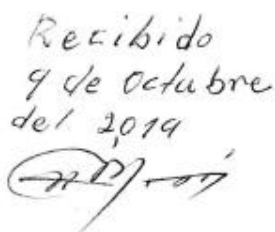 Recibido
9 de Octubre
del 2,019